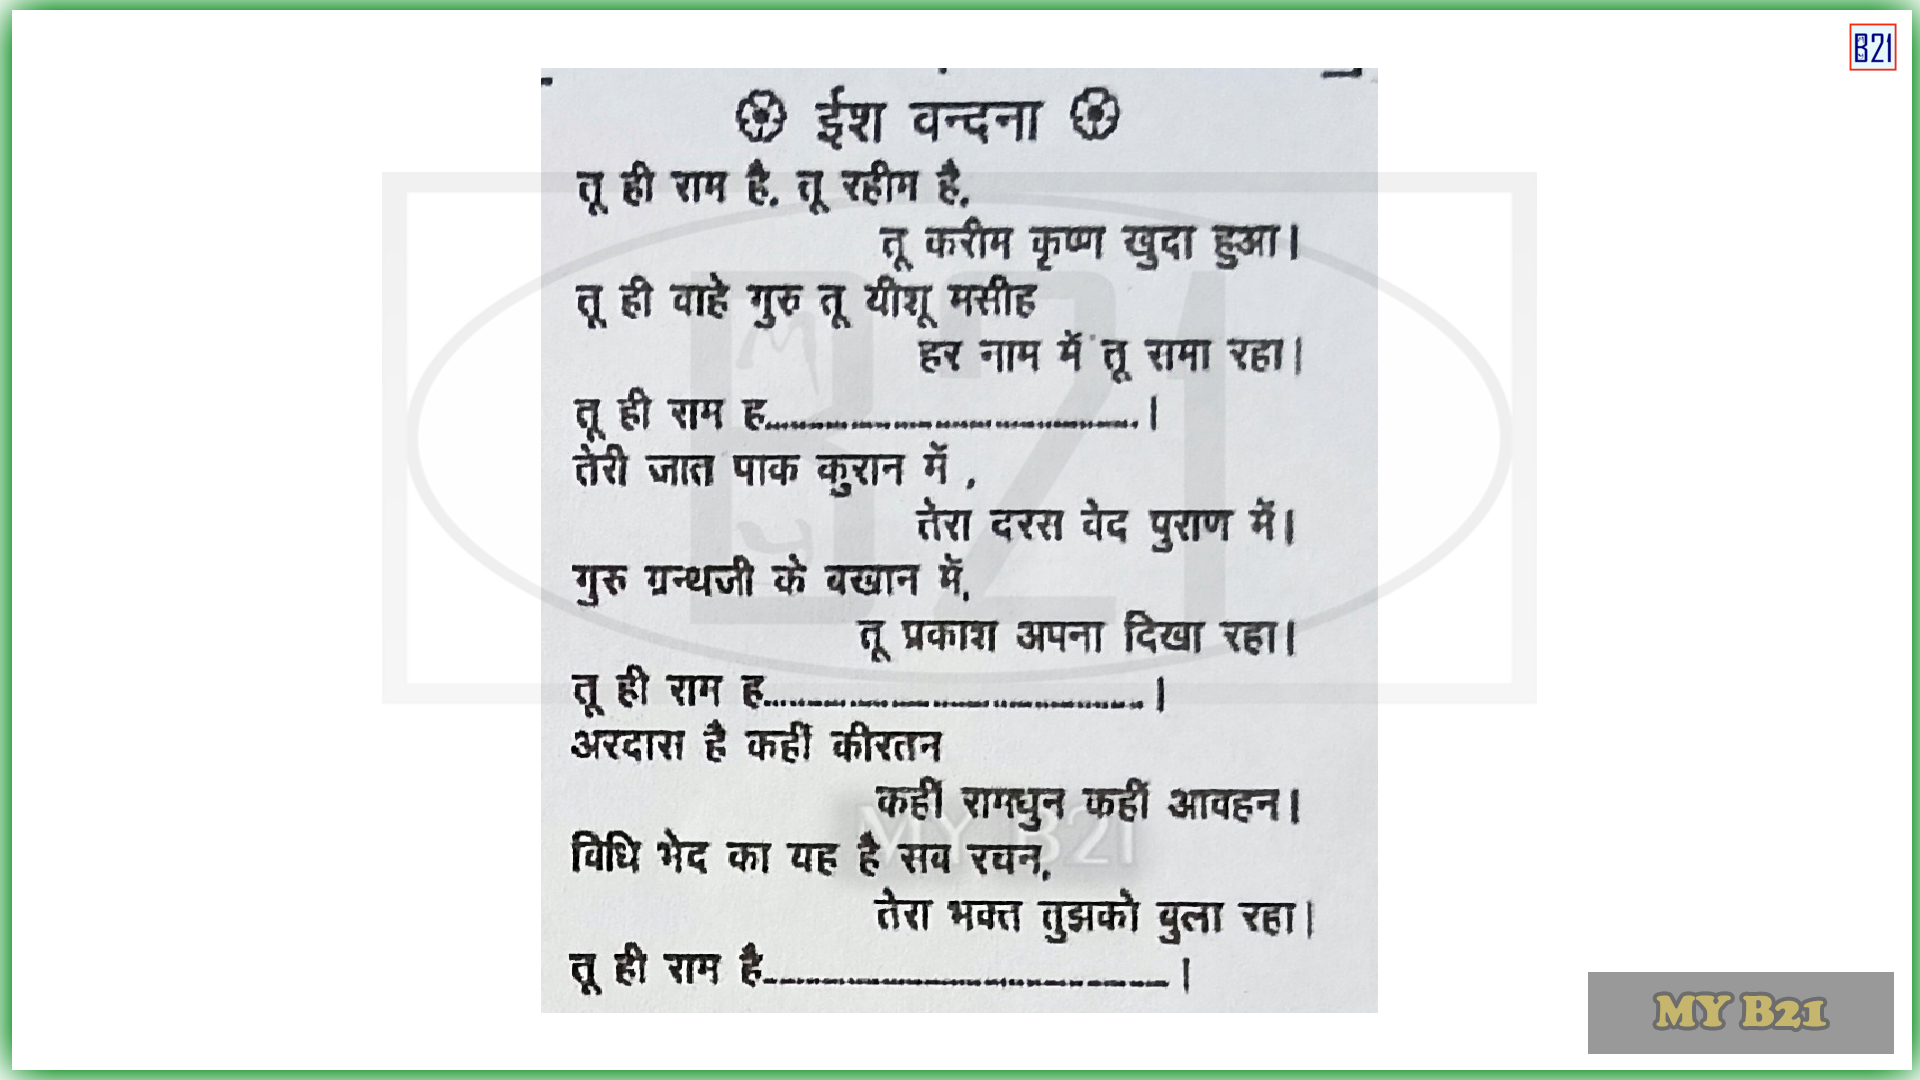 B21
ईश वन्दना
तू ही राम है, तू रहीम है,
तू करीम कृष्ण खुदा हुआ।
तू ही वाहे गुरु तू यीशू मसीह
हर नाम में तू रामा रहा।
तू ही राम ह..........................................।
तेरी जात पाक कुरान में ,
तेरा दरस वेद पुराण में।
गुरु ग्रन्थजी के वखान में,
तू प्रकाश अपना दिखा रहा।
तू ही राम ह..........................................।
अरदास है कहीं कीरतन
कहीं रामधुन कहीं आवहन।
विधि भेद का यह है सव रचन,
तेरा भक्त तुझको वुला रहा।
तू ही राम है..........................................।
MY B21
MY B21
MY B21